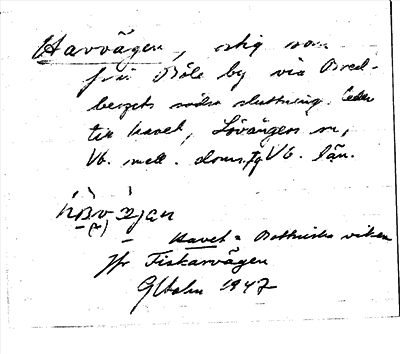 Havvägen, stig som
från Böle by via Bred-
bergets södra sluttning leder
till havet, Lövångers sn,
Vb. mell. doms. Vb. län.
havet = Bottniska viken
Jfr Fiskarvägen
GHolm 1947